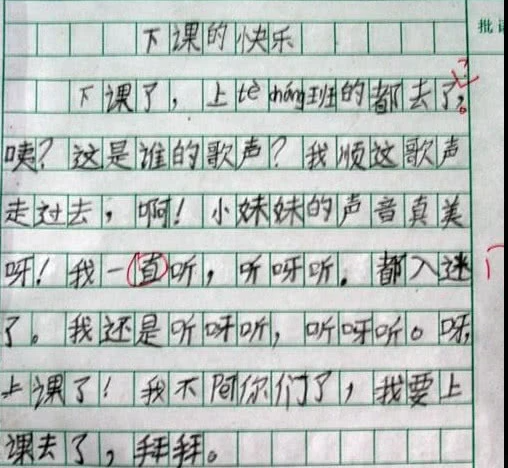 下课的快乐
批
下课了，上tè cháng班的都去了。
咦？这是谁的歌声？我顺这歌声
走过去，啊！小妹妹的声音真美
呀！我一直听，听呀听。都入迷
了。我还是听呀听，听呀听。呀，
上课了！我不陪你们了，我要上
课去了，拜拜。